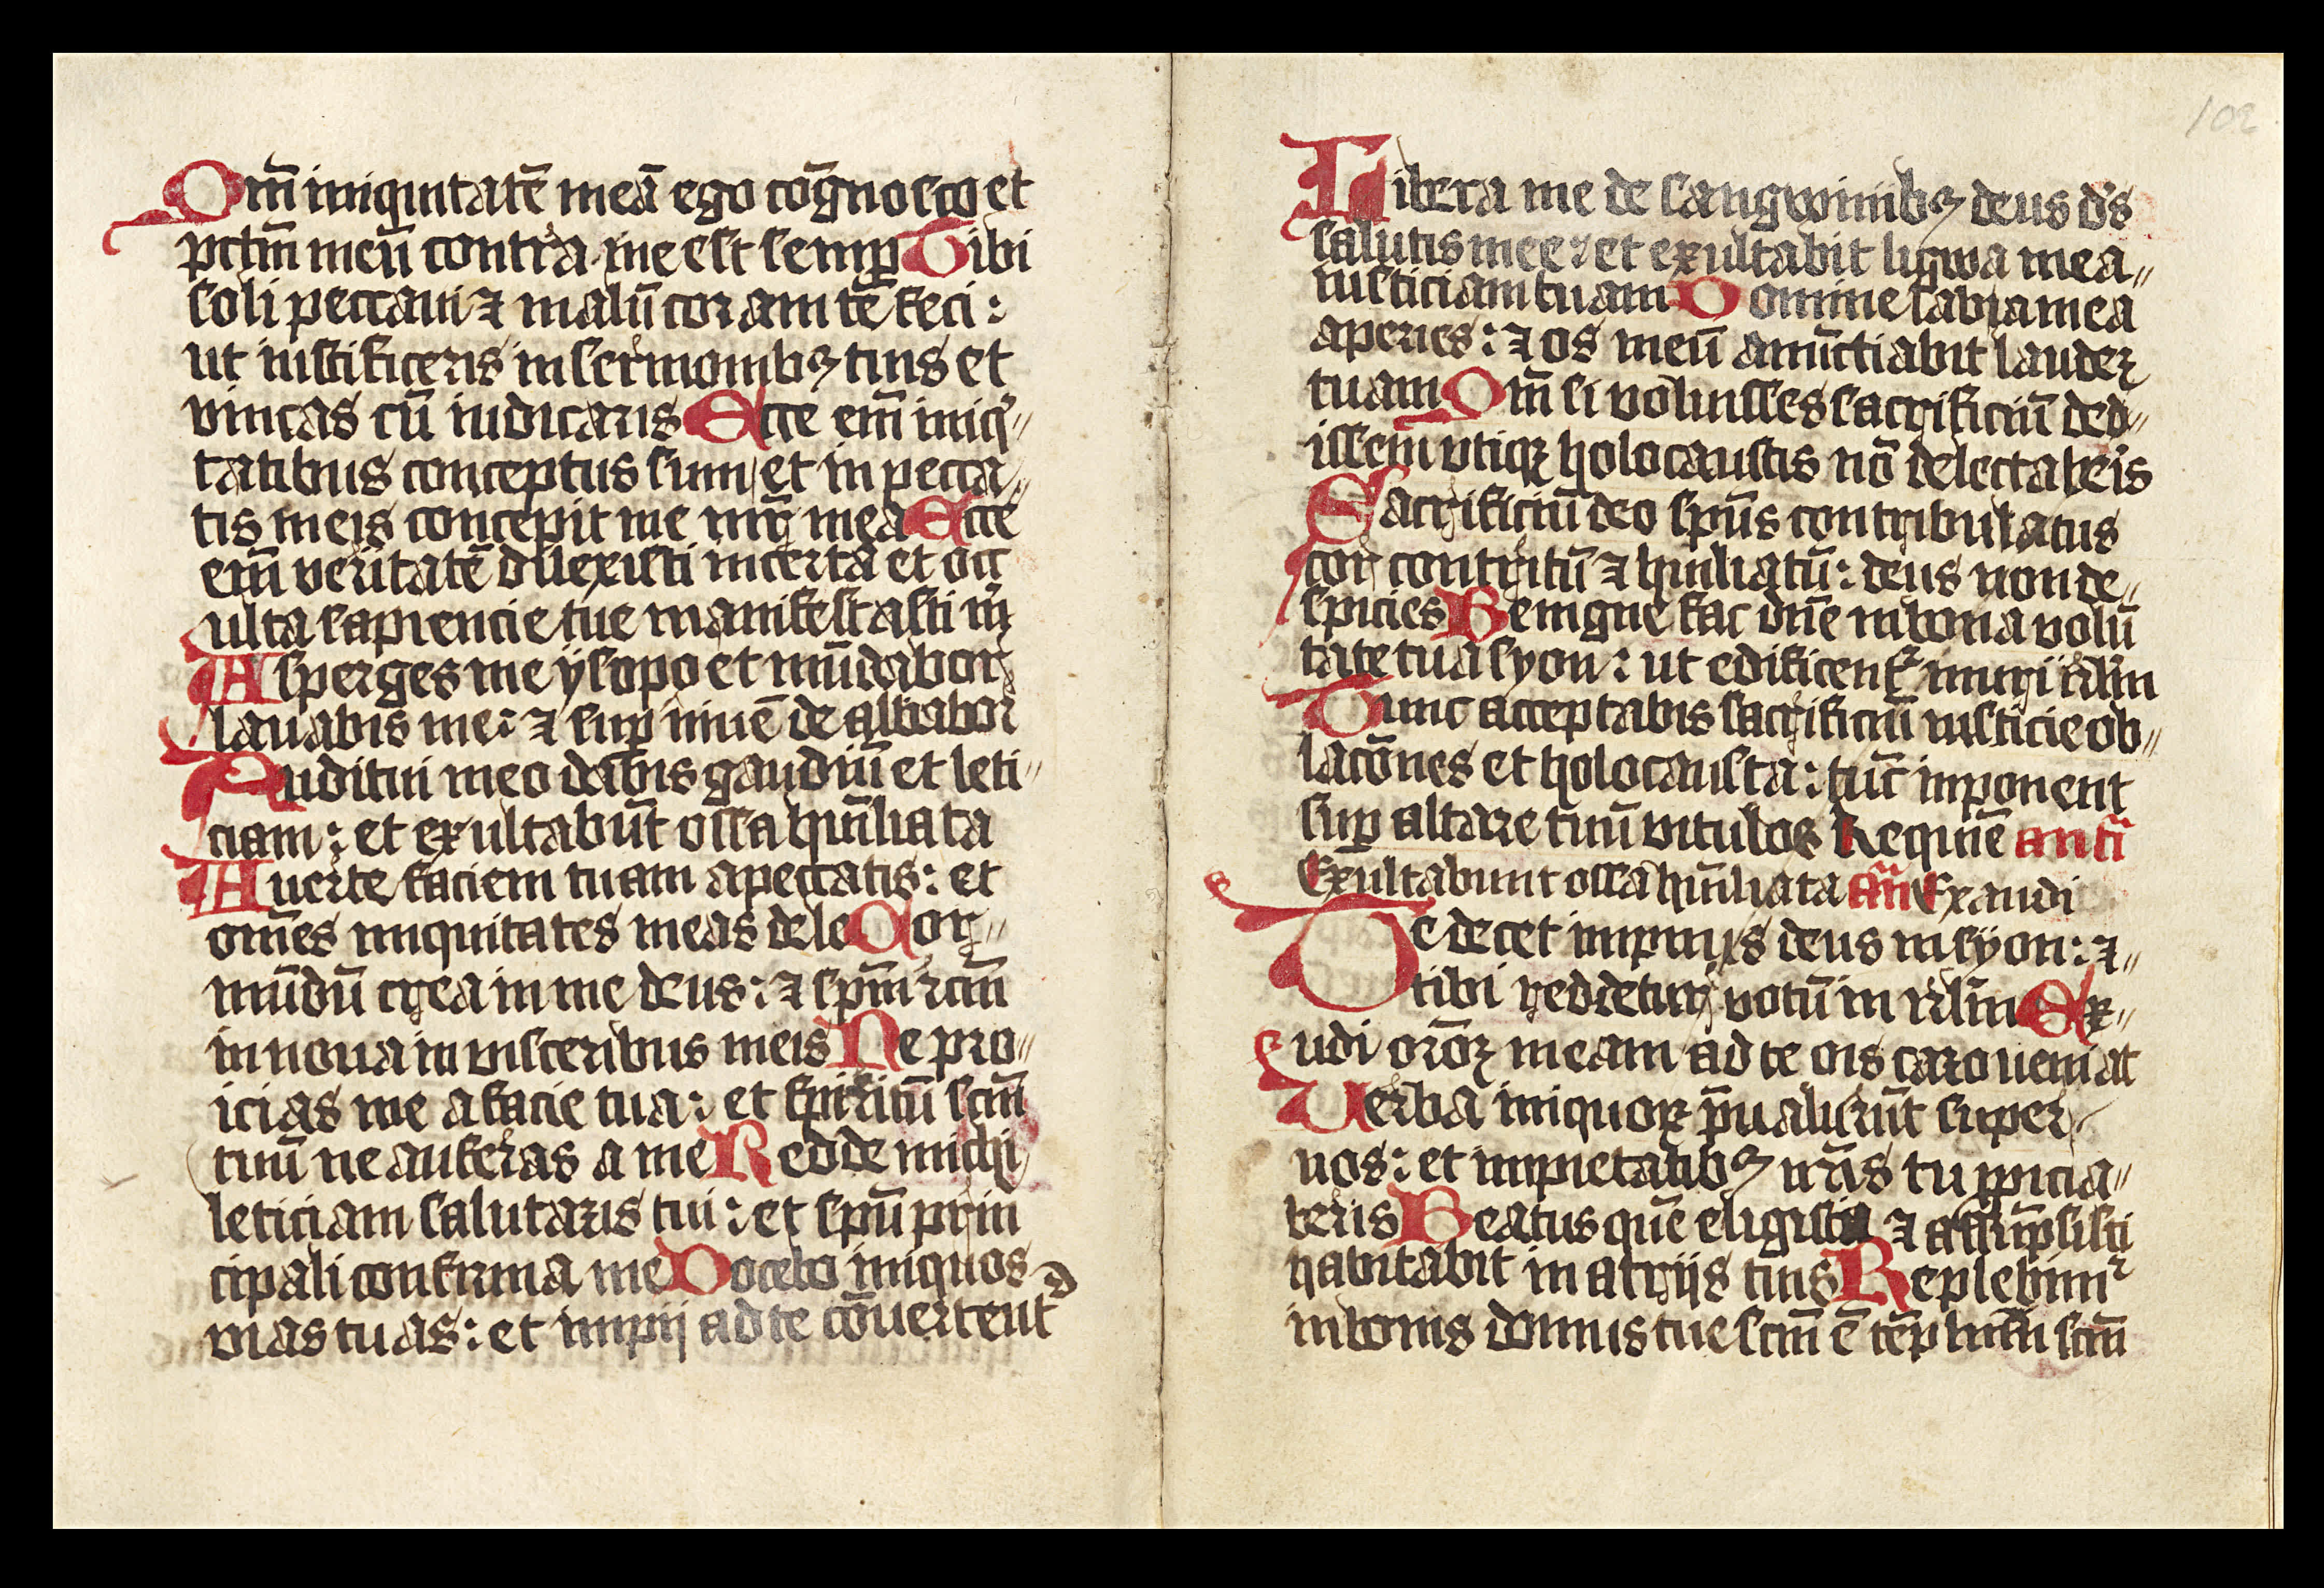 Qm̄ iniquitatē meā ego cōgnosco et
pctm̄ meū contra me est semꝑ Tibi
soli peccaui ⁊ malū coram te feci:
ut iustificeris in sermonibꝫ tuis et
vincas cū iudicaris Ecce em̄ iniq̄〃
tatibus conceptus sum et in pecca〃
tis meis concepit me mr̄ mea Ecce
em̄ veritatē dilexisti incerta et occ
ulta sapiencie tue manifestasti m̄
Asperges me ysopo et mūdabor
lauabis me: ⁊ suꝑ niuē de albabor
Auditui meo dabis gaudiū et leti〃
ciam: et exultabūt ossa hūiliata
Auerte faciem tuam a peccatis: et
om̄es iniquitates meas dele Cor〃
mūdū crea in me deus: ⁊ spm̄ rcm̄
innoua in visceribus meis Ne pro〃
icias me a facie tua: et spiritū scm̄
tuū ne auferas a me Redde michi
leticiam salutaris tui: et spū prin
cipali confirma me Docebo iniquos
vias tuas: et impij ad te cōuertent᷑
Libera me de sangwinibꝫ deus ds̄
salutis mee: et exultabit ligwa mea〃
iusticiam tuam Domine labia mea
aperies: ⁊ os meū anūctiabit laudeꝫ
tuam Qm̄ si voluisses sacrificiū ded〃
issem vtiqꝫ holocaustis nō delectaberis
Sacrificiū deo spūs contribulatus
cor contritū ⁊ hūiliatū: deus non de〃
spicies Benigne fac dn̄e in bona volū
tate tua syon: ut edificent᷑ muri irl̄m
Tunc acceptabis sacrificiū iusticie ob〃
lacōnes et holocausta: tūc inponent
suꝑ altare tuū vitulos Requiē anti
Exultabunt ossa hūiliata an̄ Exaudi
Te decet impnus deus in syon: ⁊〃
tibi reddetur votū in irl̄m Ex〃
udi orōꝫ meam ad te ois caro ueniat
Verba iniquoꝝ p̄ualuerūt super
nos: et impietatibꝫ nrīs tu ꝓpicia〃
beris Beatus quē eligisti ⁊ assūpsisti
habitabit in atrijs tuis Replebimur
in bonis domus tue scm̄ ē tēplum tuū
102